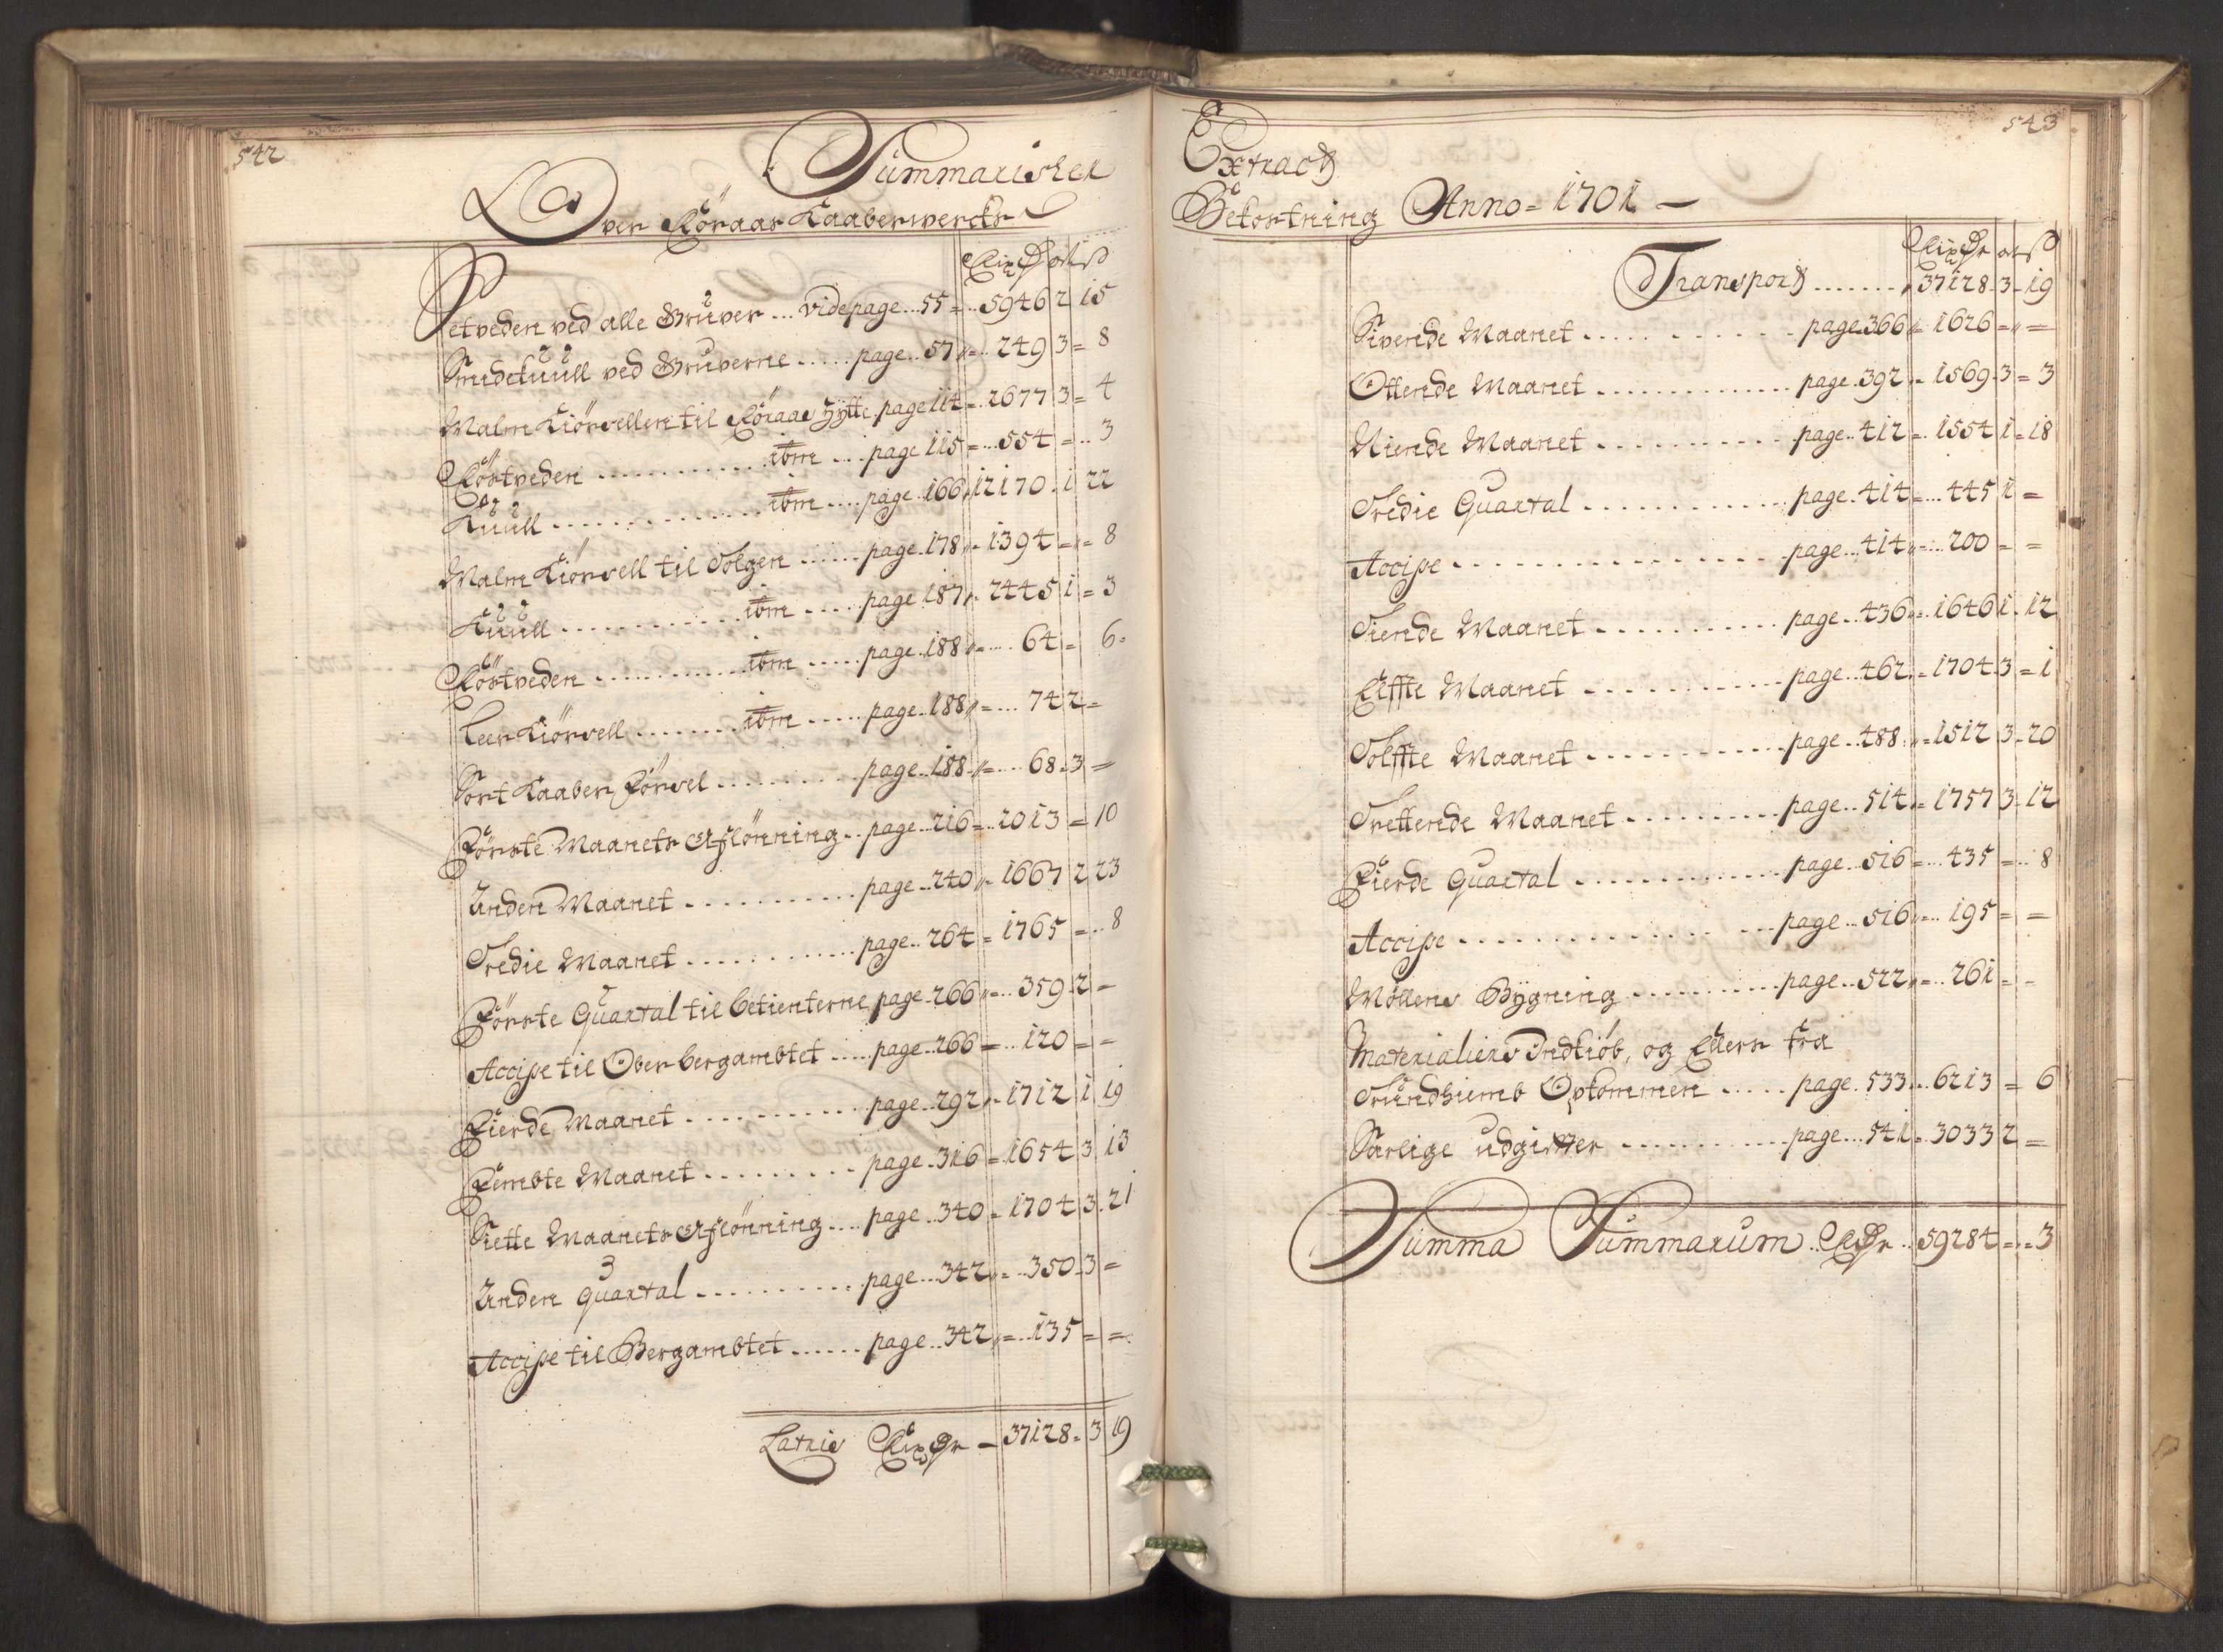 542
Summarischer
Over Röraas Kaaberwercks
Rixdr ort ß
Setveden ved alle Gruver ... vide page .. 55 = .. 5946 2 15
Smidekuull ved Gruverne ..... page .. 57 „= .. 249 3 = 8
Malm Kiörsellen til Röraas Hytte page 114 = .. 2677 3 = 4
Röstveden ........... ibm ... page 115 = ... 554 = .. 3
Kuull ............. ibm .... page 166 „ 12170 . 1 22
Malm Kiörsell til Tolgen ...... page . 178 „. 1394 = „ = 8
Kuull ............ ibm .... page 187 „. 2445 1 = 3
Röstveden ........... ibm ..... page . 188 „= .... 64 = 6 =
Leer Kiörsell ....... ibm ..... page . 188 „= ... 74 2 =
Sort Kaaber Försel ......... page .. 188 . „= ... 68 . 3 =
Förste Maanets Aflönning .. page .. 216 = .. 2013 = 10
Anden Maanet ........... page .. 240 „. 1667 2 23
Tredie Maanet ............ page .. 264 = 1765 = .. 8
Förste Quartal til betienterne page . 266 „= .. 359 . 2 -
Accise til Ober bergambtet ..... page .. 266 = ... 120 = -
Fierde Maanet .......... page .. 292 „. 1712 1 19
Fembte Maanet ......... page . 316 = 1654 3 13
Siette Maanets Aflönning .... page .. 340 = 1704 3 . 21
Anden Quartal .......... page ... 342 „= .. 350 . 3 =
Accise til Bergambtet ...... page .. 342 „= ... 135 = =
Latris Rixdr - 37128 = 3 19
543
Extract
Bekostning Anno = 1701 -
Rixdr ort ß
Transport ....... „ 37128 . 3 - 19
Sivende Maanet ........... page . 366 „= 1626 = „ =
Ottende Maanet ............. page . 392 „. 1569 . 3 = 3
Niende Maanet ........... page .. 412 = 1554 1 = 18
Tredie Quartal ............ page . 414 = ... 445 1 =
Accise ................ page .. 414 „= ... 200 = =
Tiende Maanet ........... page .. 436 „= 1646 1 . 12
Elffte Maanet ........... page .. 462 . = 1704 . 3 = 1
Tolffte Maanet ........... page .. 488 . „= 1512 . 3 - 20
Trettende Maanet .......... page .. 514 „= 1757 3 - 12
Fierde Quartal ............. page .. 516 = ... 435 = .. 8
Accise ................. page .. 516 „= .. 195 = =
Möllens Bygning .......... page .. 522 „= .. 261 = -
Materialiers Indkiöb, og Ellers fra
Trundhiemb Opkommen ..... page . 533 „.. 6213 = 6
Särlige udgivter ........... page ... 541 = 3033 2 =
Summa Summarum .. Rdr .. 59284 = .. = 3